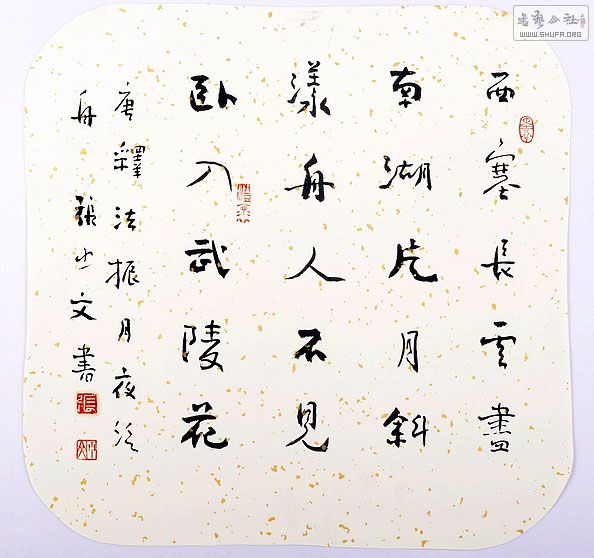 西塞長雲盡
南湖片月斜
漾舟人不見
卧入武陵花
唐釋法振月夜泛
舟 張少文書
書藝公社
WWW.SHUFA.ORG